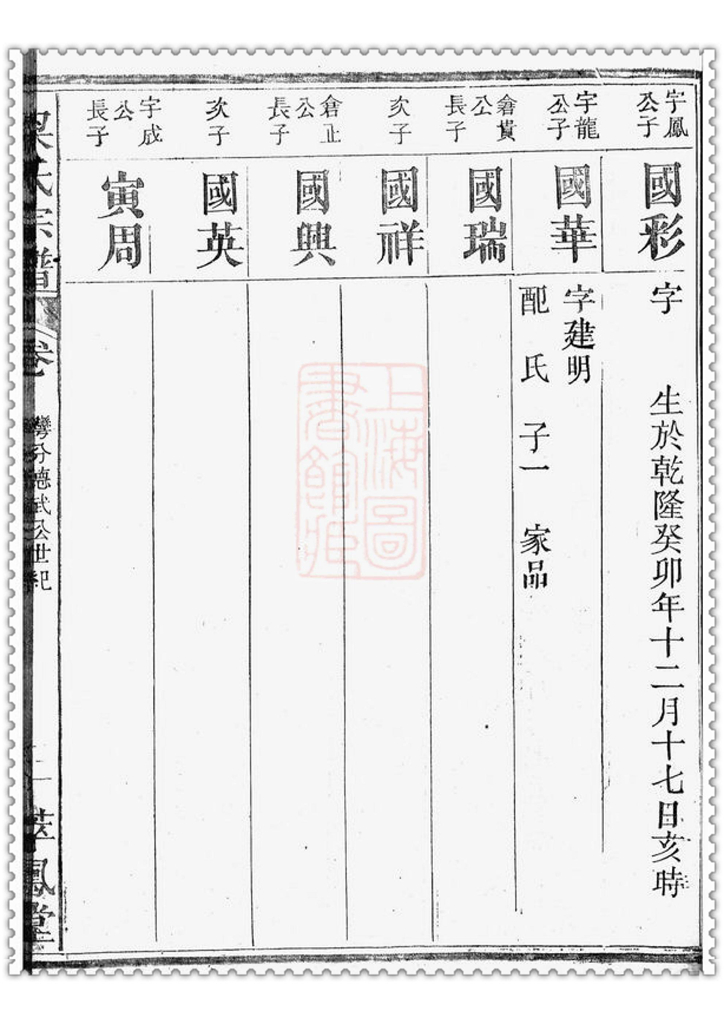 字鳳公子
國彩
字 生於乾隆癸卯年十二月十七日亥時
字龍公子
國華
字建明
配氏 子一 家品
倉貴公長子
國瑞
次子
國祥
倉正公長子
國興
次子
國英
字成公長子
寅周
氏宗譜
卷
分德武公世紀
鳳堂
上海圖書館藏